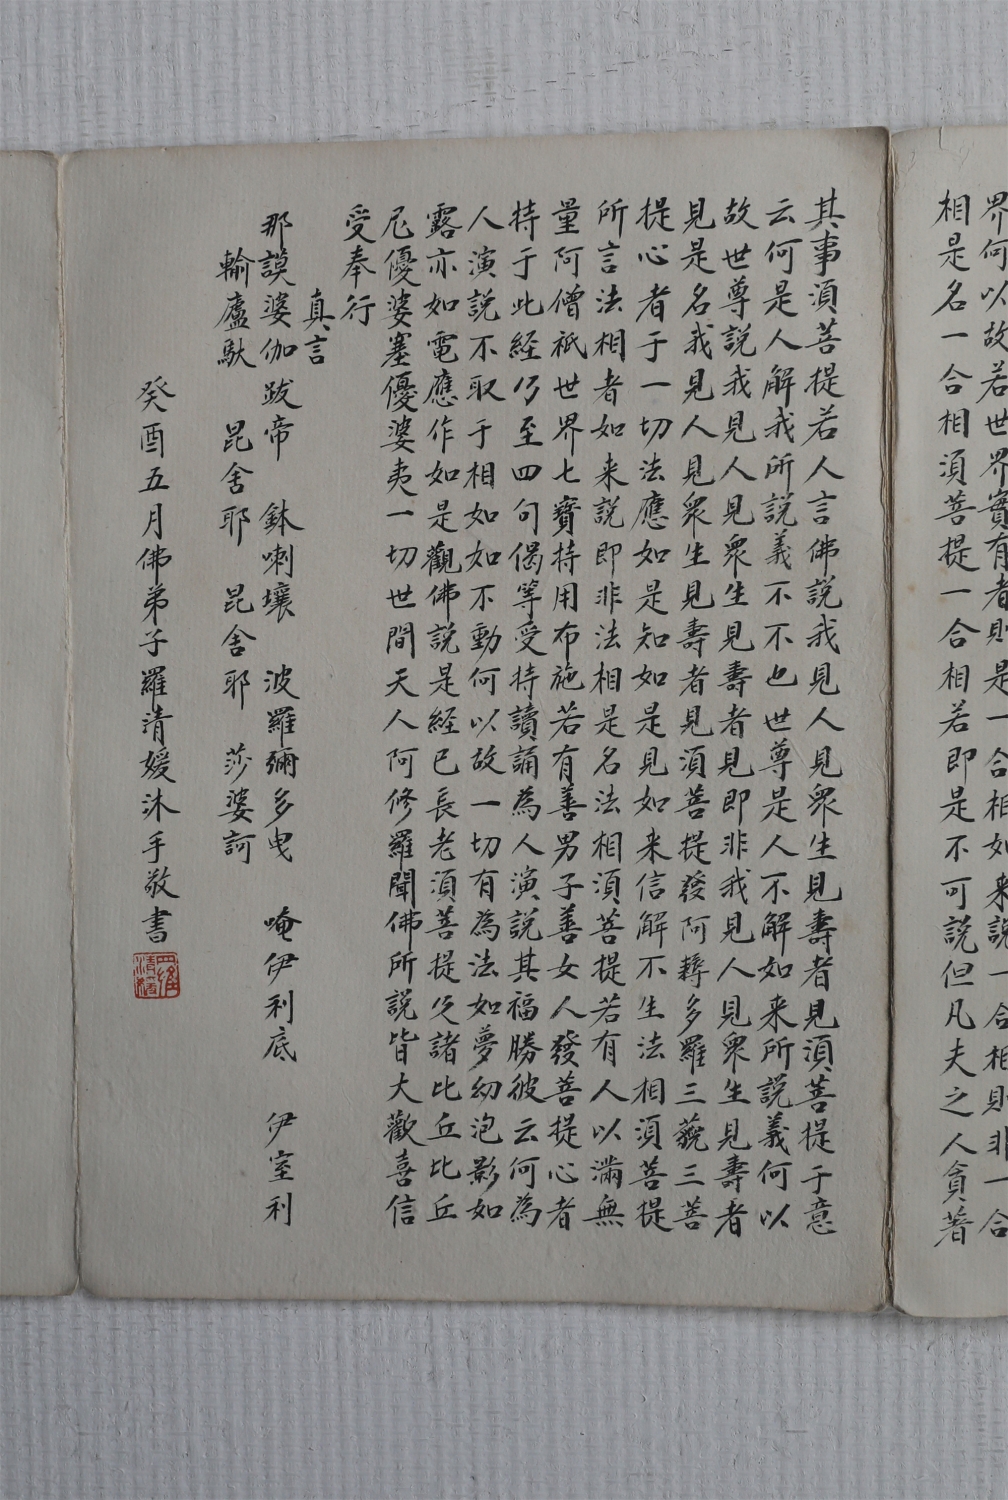 界何以故若世界實有者則是一合相如来説一合相則非一合
相是名一合相須菩提一合相若即是不可説但凡夫之人貪著
其事須菩提若人言佛説我見人見衆生見壽者見須菩提于意
云何是人解我所説義不不也世尊是人不解如来所説義何以
故世尊説我見人見衆生見壽者見即非我見人見衆生見壽者
見是名我見人見衆生見壽者見須菩提發阿耨多羅三藐三菩
提心者于一切法應如是知如是見如来信解不生法相須菩提
所言法相者如来説即非法相是名法相須菩提若有人以滿無
量阿僧祇世界七寶持用布施若有善男子善女人發菩提心者
持于此経乃至四句偈等受持讀誦為人演説其福勝彼云何為
人演説不取于相如如不動何以故一切有為法如夢幻泡影如
露亦如電應作如是觀佛説是経已長老須菩提及諸比丘比丘
尼優婆塞優婆夷一切世間天人阿修羅聞佛所説皆大歡喜信
受奉行
真言
那謨婆伽跋帝 鉢喇壤 波羅彌多曳 唵伊利底 伊室利
輸盧馱 昆舍耶 昆舍耶 莎婆訶
癸酉五月佛弟子羅清媛沐手敬書